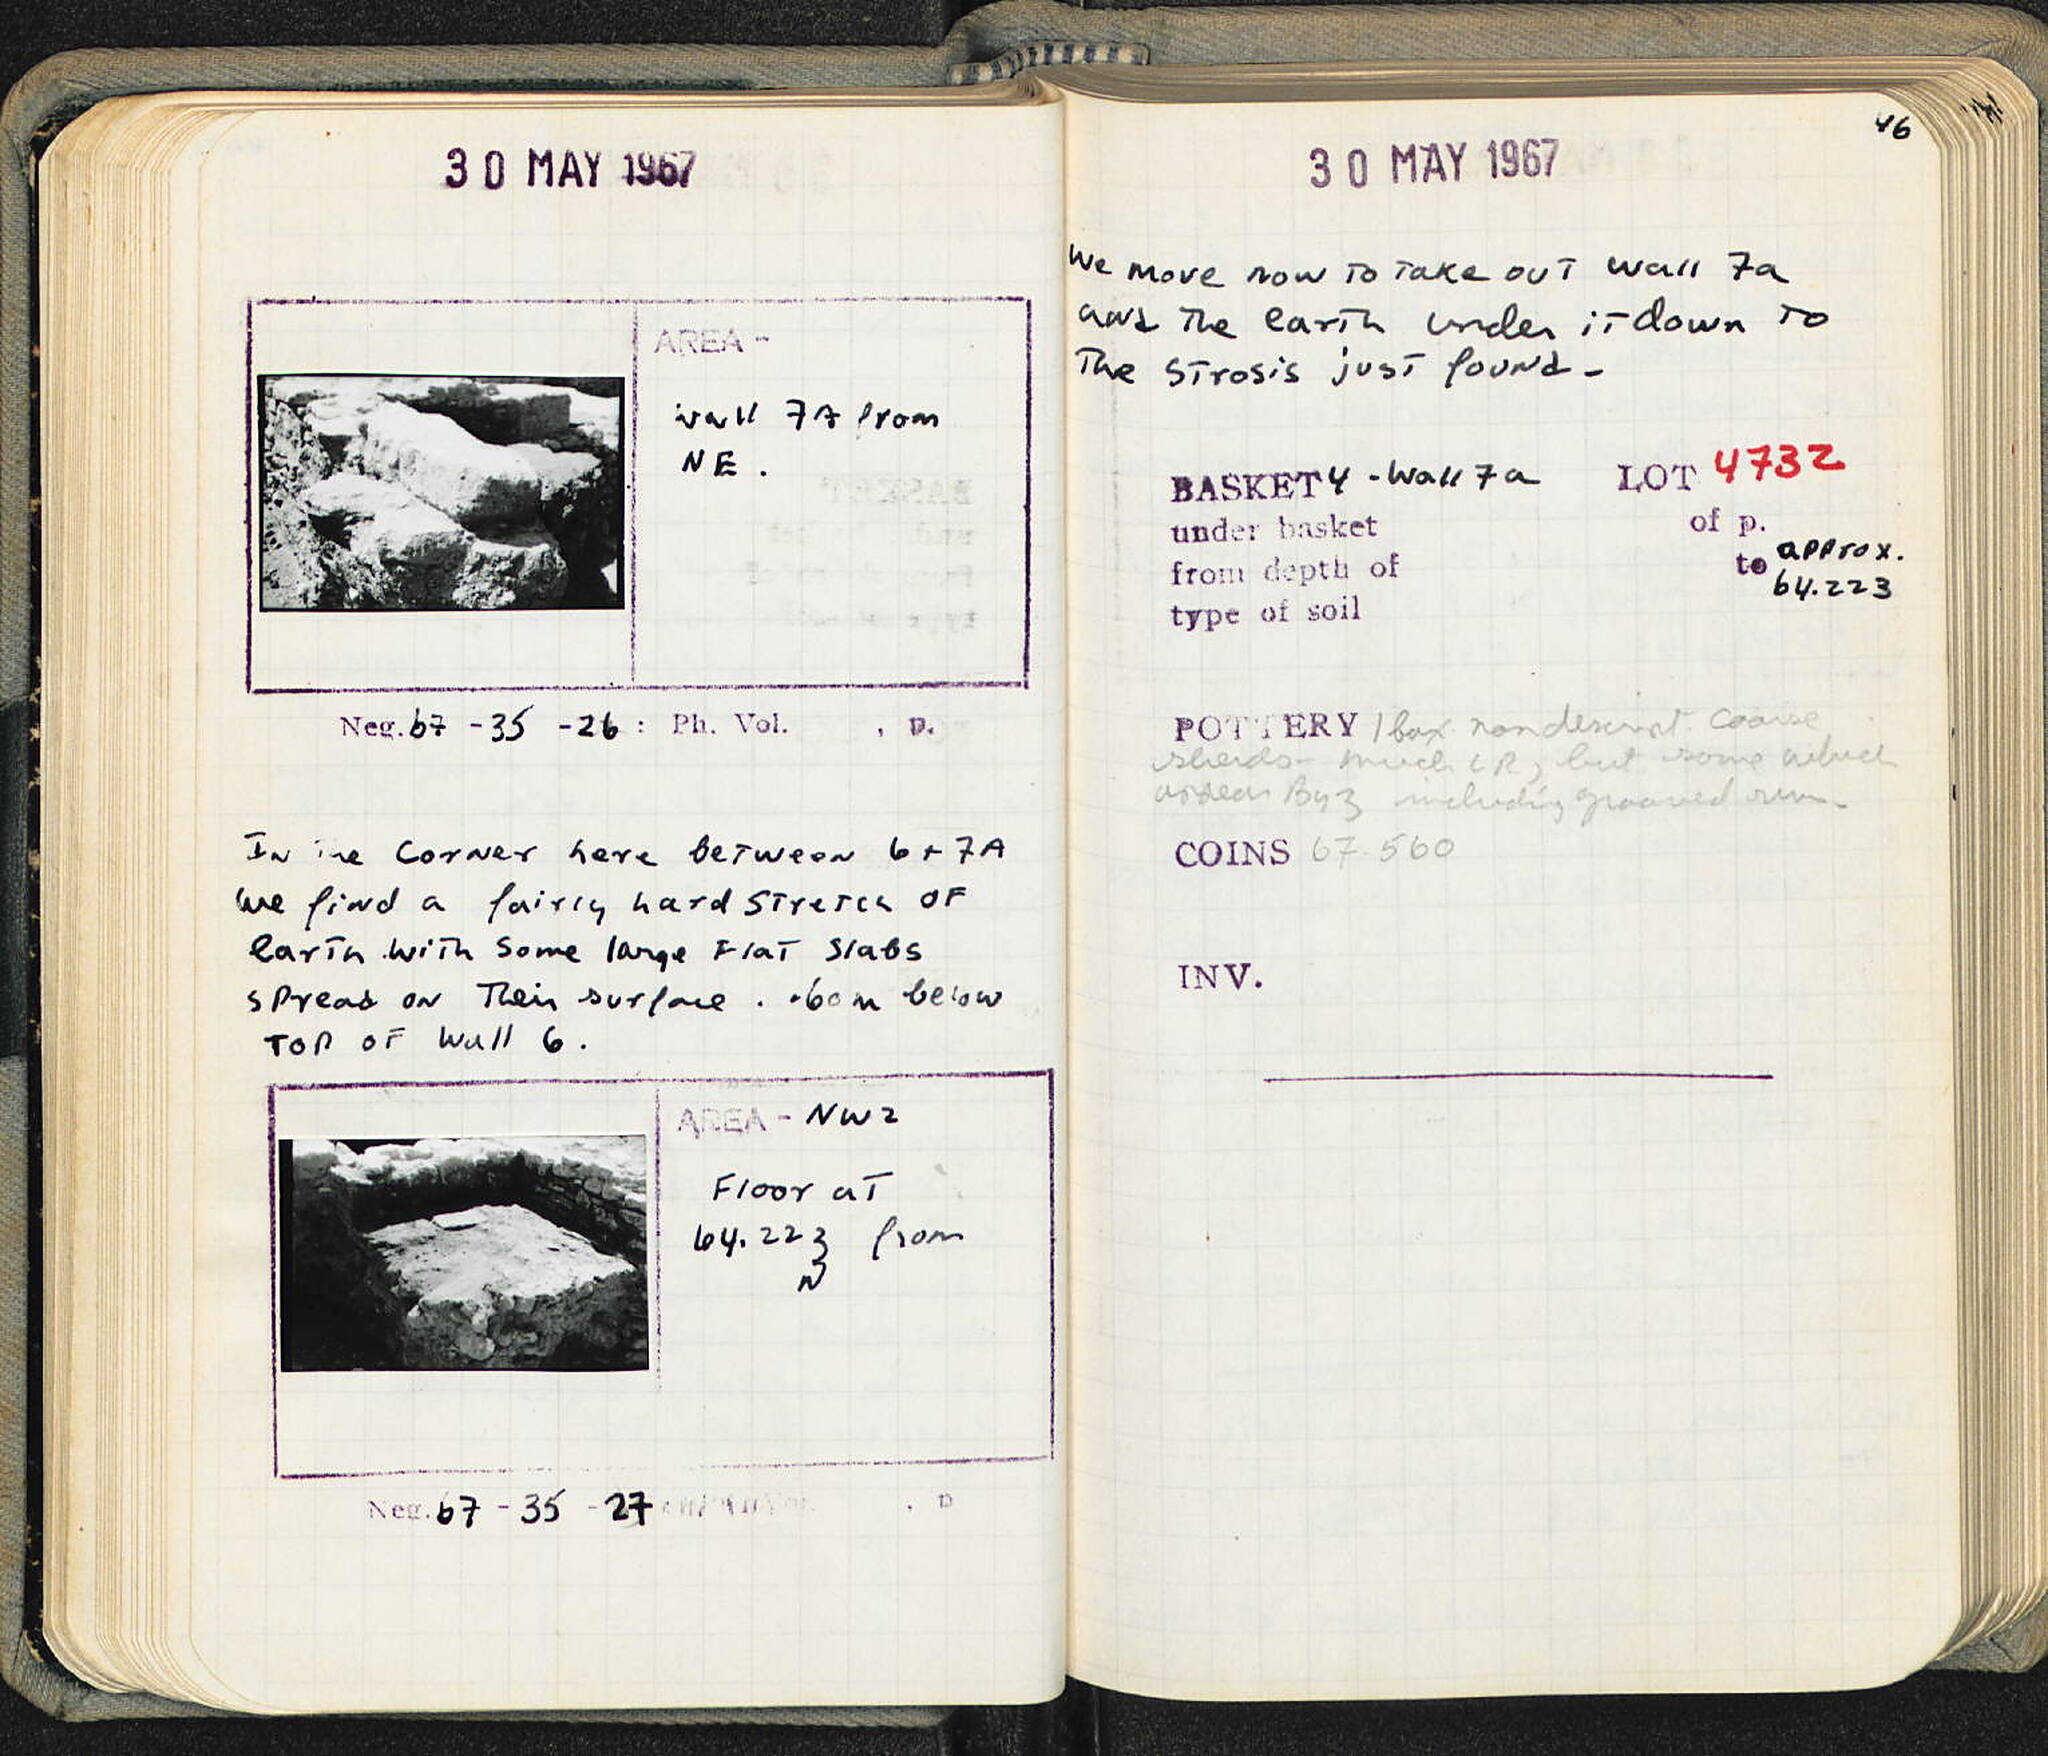 30 MAY 1967
AREA -
wall 7A from
NE.
Neg. 67 - 35 - 26 : Ph. Vol. , p.
In The Corner here between 6 + 7A
we find a fairly hard stretch of
earth with some large flat slabs
spread on their surface. .60m below
Top of Wall 6.
AREA - NW2
Floor at
64.223 from
N
Neg. 67 - 35 - 27 , p
46
30 MAY 1967
We move now to take out wall 7a
and the earth under it down to
the strosis just found -
BASKET 4 - Wall 7a LOT 4732
under basket of p.
from depth of to approx.
64.223
type of soil
POTTERY 1 box nondescript coarse
sherds - much LR, but some which
appear Byz including grooved rim.
COINS 67.560
INV.